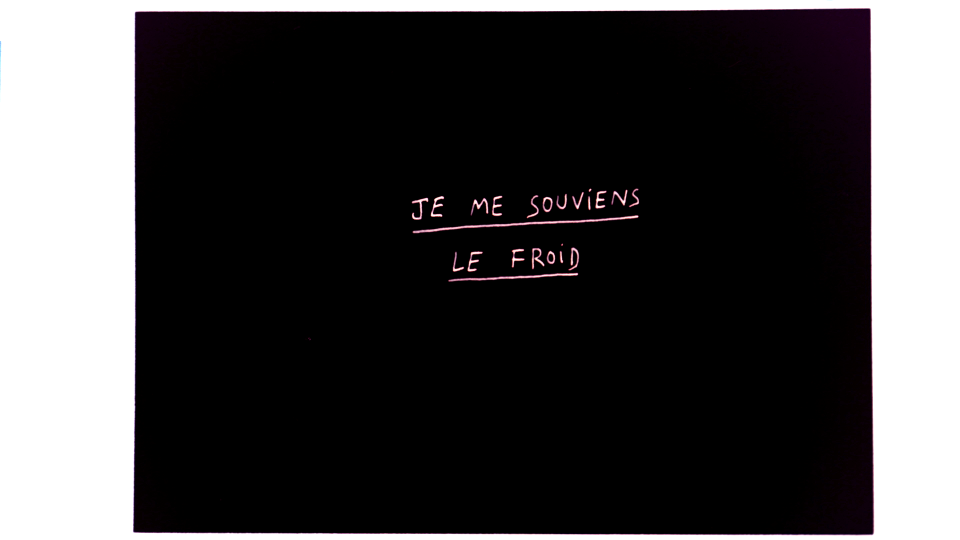 JE ME SOUViENS
LE FROiD